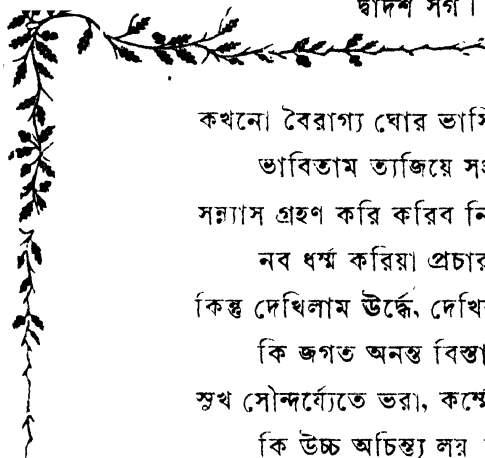 দ্বাদশ সর্গ।
কখনো বৈরাগ্য ঘোর
ভাবিতাম ত্যজিয়ে
সন্ন্যাস গ্রহণ করি করিব
নব ধর্ম্ম করিয়া প্রচার
কিন্তু দেখিলাম ঊর্দ্ধে,
কি জগত অনন্ত
সুখ সৌন্দর্য্যেতে ভরা,
কি উচ্চ অচিন্ত্য লয়